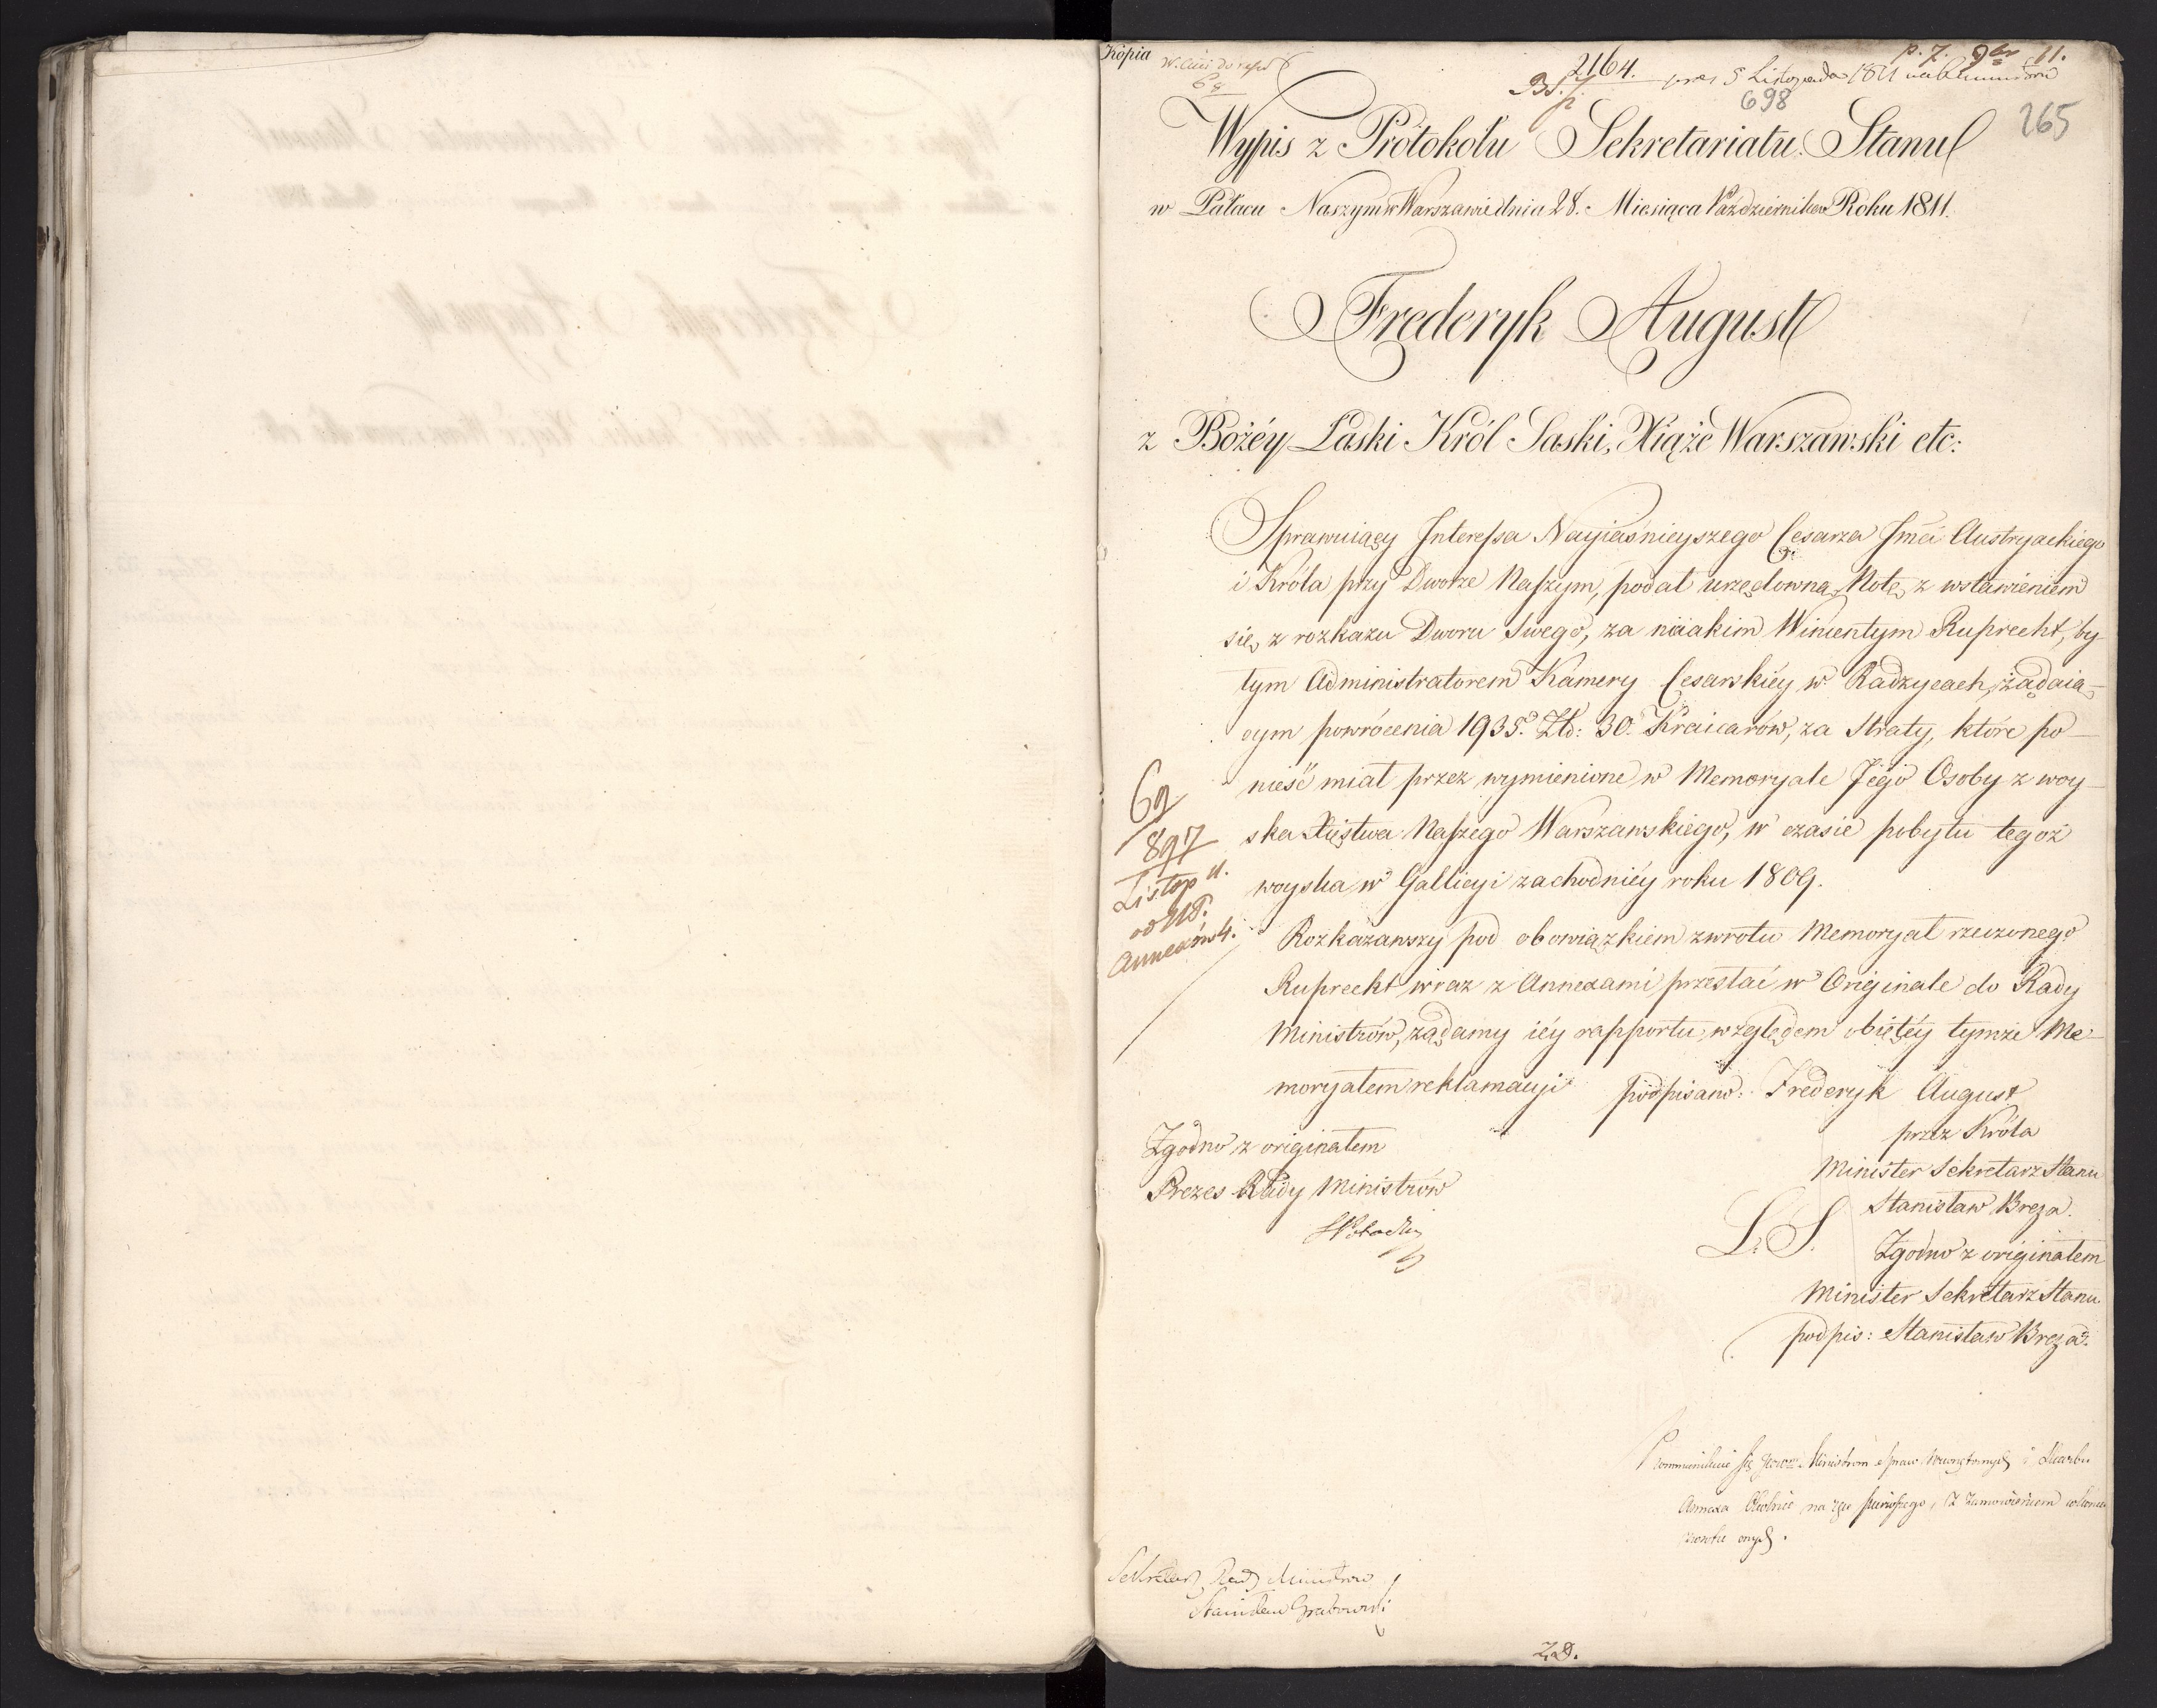 Kopia
2164.
p. 7. 9br 11.
5 Listopada 1811
698
265
Wypis z Protokołu Sekretariatu Stanu
w Pałacu Naszym w Warszawie dnia 28. Miesiąca Października Roku 1811.
Frederyk August
z Bożéy Łaski Król Saski, Xiąże Warszawski etc:
Sprawuiący Interessa Nayiaśnieyszego Cesarza Jmći Austryackiego
i Króla przy Dworze Naszym, podał urzędowną Notę, z wstawieniem
się, z rozkazu Dworu Swego, za nieiakim Wincentym Ruprecht, by-
łym Administratorem Kamery Cesarskiéy w Radzycach, żądaią-
cym powrócenia 1935. Zło: 30. Kraicarów, za Straty, które po-
nieść miał przez wymienione w Memoryale Jego Osoby z woy-
ska Xięstwa Naszego Warszawskiego, w czasie pobytu tegoż
woyska w Gallicyi zachodniéy roku 1809.
69
897
Listop 11.
Annexów 4.
Rozkazawszy pod obowiązkiem zwrotu Memoryał rzeczonego
Ruprecht wraz z Annexami przesłać w Originale do Rady
Ministrów, żądamy iéy rapportu, względem obiętéy tymże Me-
moryałem reklamacyi podpisano: Frederyk August
przez Króla
Minister Sekretarz Stanu
Stanisław Breza.
L. S.
Zgodno z originałem
Minister Sekretarz Stanu
podpis: Stanisław Breza.
Zgodno z originałem
Prezes Rady Ministrów
Kommunikuie się Ministrom spraw Wewnętrznych i Skarbu
Annexa na ręce pierwszego, z zamowieniem
zwrotu onych.
Sekretarz Rady Ministrow
Stanisław Grabowski